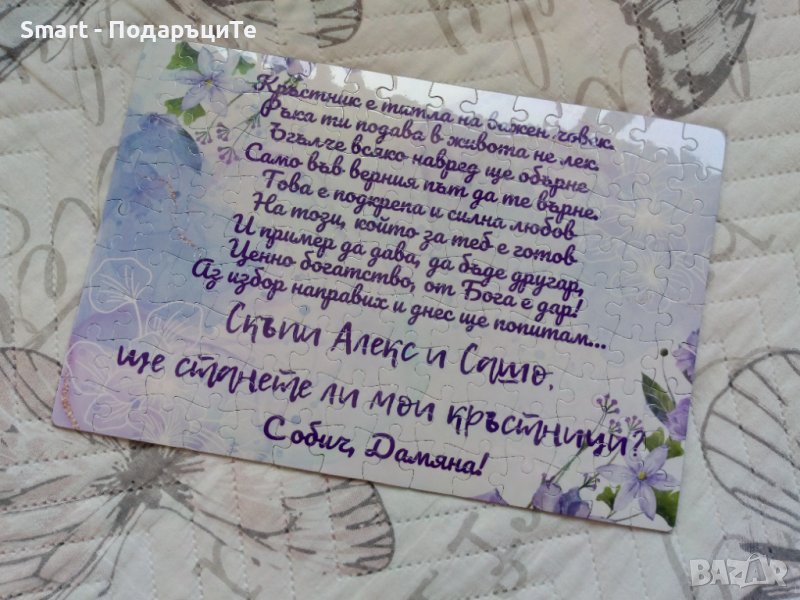 Smart - ПодаръциТе
Кръстник е титла на важен човек.
Ръка ти подава в живота не лек.
Бгълче всяко навред ще обърне
Само във верния път да те върне.
Това е подкрепа и силна любов
На този, който за теб е готов
И пример да дава, да бъде другар,
Ценно богатство, от Бога е дар!
Аз избор направих и днес ще попитам...
Скъпи Алекс и Сашо,
ще станете ли мои кръстници?
С обич, Дамяна!
BAZAR